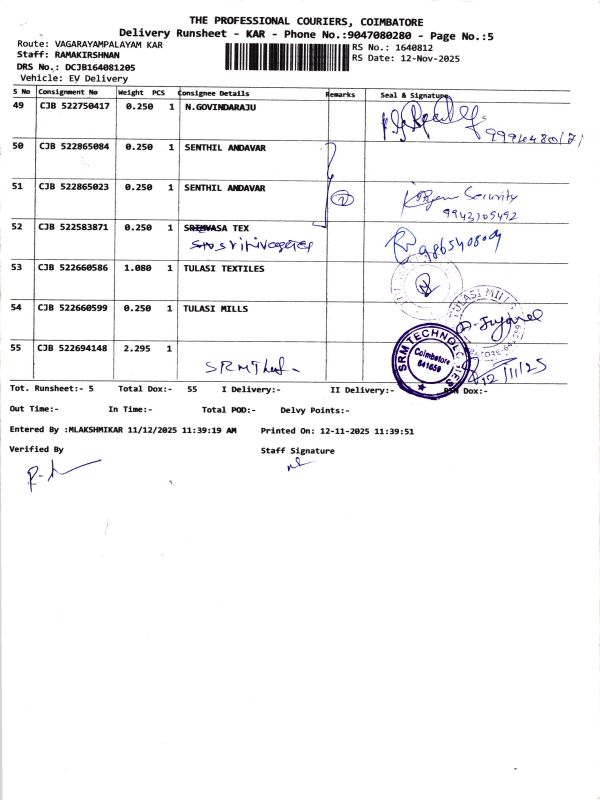 THE PROFESSIONAL COURIERS, COIMBATORE
Delivery Runsheet - KAR - Phone No.:9047080280 - Page No.:5
Route: VAGARAYAMPALAYAM KAR RS No.: 1640812
Staff: RAMAKIRSHNAN RS Date: 12-Nov-2025
DRS No.: DCJB164081205
Vehicle: EV Delivery
S No Consignment No Weight PCS Consignee Details Remarks Seal & Signature
49 CJB 522750417 0.250 1 N.GOVINDARAJU
50 CJB 522865084 0.250 1 SENTHIL ANDAVAR
51 CJB 522865023 0.250 1 SENTHIL ANDAVAR 2 Security
9943105492
52 CJB 522583871 0.250 1 SRINVASA TEX
53 CJB 522660586 1.080 1 TULASI TEXTILES
54 CJB 522660599 0.250 1 TULASI MILLS TULASI MILLS
55 CJB 522694148 2.295 1 SRM TECHNOLOGIES Coimbatore 641659 12/11/25
Tot. Runsheet:- 5 Total Dox:- 55 I Delivery:- II Delivery:- Dox:-
Out Time:- In Time:- Total POD:- Delvy Points:-
Entered By :MLAKSHMIKAR 11/12/2025 11:39:19 AM Printed On: 12-11-2025 11:39:51
Verified By Staff Signature